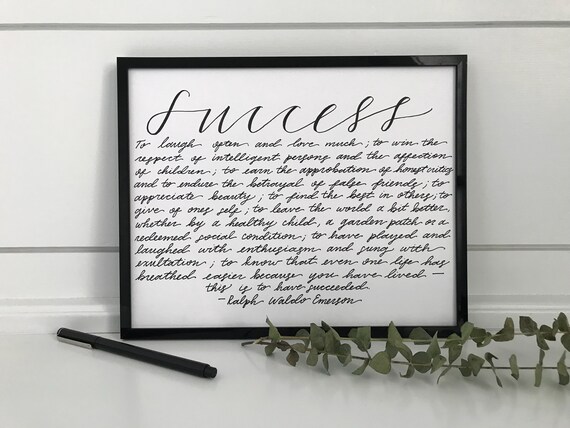 Success
To laugh often and love much; to win the
respect of intelligent persons and the affection
of children; to earn the approbation of honest critics
and to endure the betrayal of false friends; to
appreciate beauty; to find the best in others; to
give of ones self; to leave the world a bit better,
whether by a healthy child, a garden patch or a
redeemed social condition; to have played and
laughed with enthusiasm and sung with
exultation; to know that even one life has
breathed easier because you have lived —
this is to have succeeded.
- Ralph Waldo Emerson